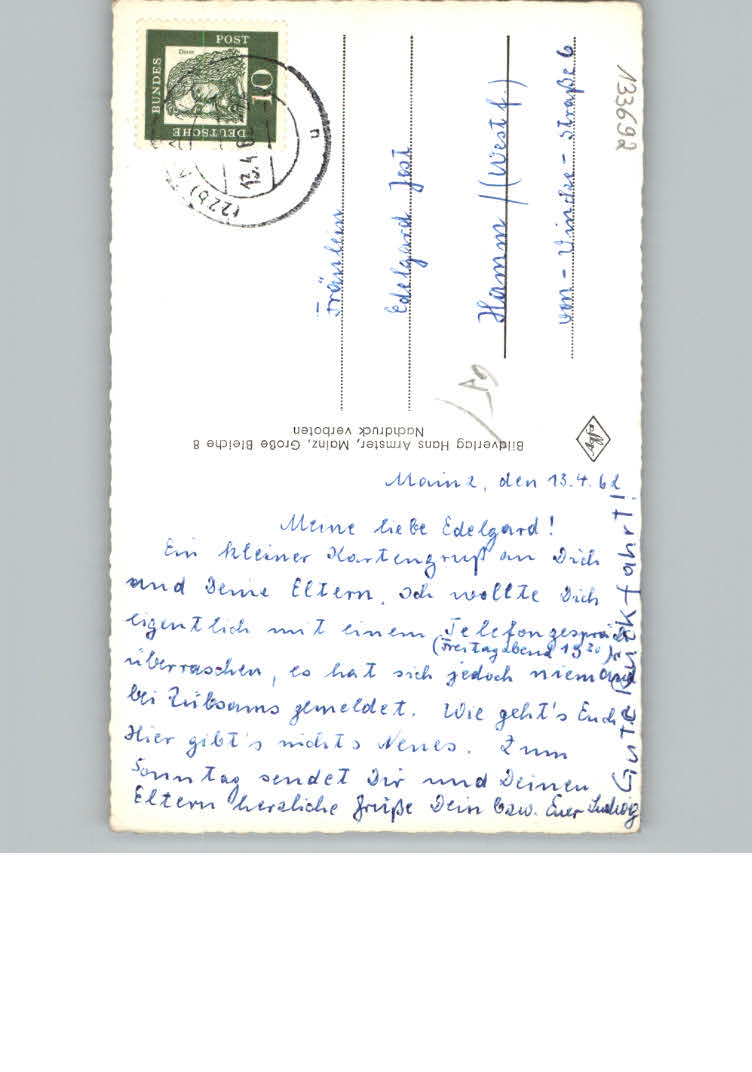 Mainz, den 13.4.62
Meine liebe Edelgard!
Ein kleiner Kartengruß an Dich
und Deine Eltern. Ich wollte Dich
eigentlich mit einem Telefongespräch
(Freitagabend 19³⁰)
überraschen, es hat sich jedoch niemand
bei Zübsams gemeldet. Wie geht's Euch?
Hier gibt's nichts Neues. Zum
Sonntag sendet Dir und Deinen
Eltern herzliche Grüße Dein bzw. Euer Ludwig
Gute Rückfahrt!
Fräulein
Edelgard Jost
Hamm /(Westf)
von-Vincke-Straße 6
133692
Bildverlag Hans Armster, Mainz, Große Bleiche 8
Nachdruck verboten
DEUTSCHE
BUNDES
POST
10
Dürer
(22b)
13.4.6
n